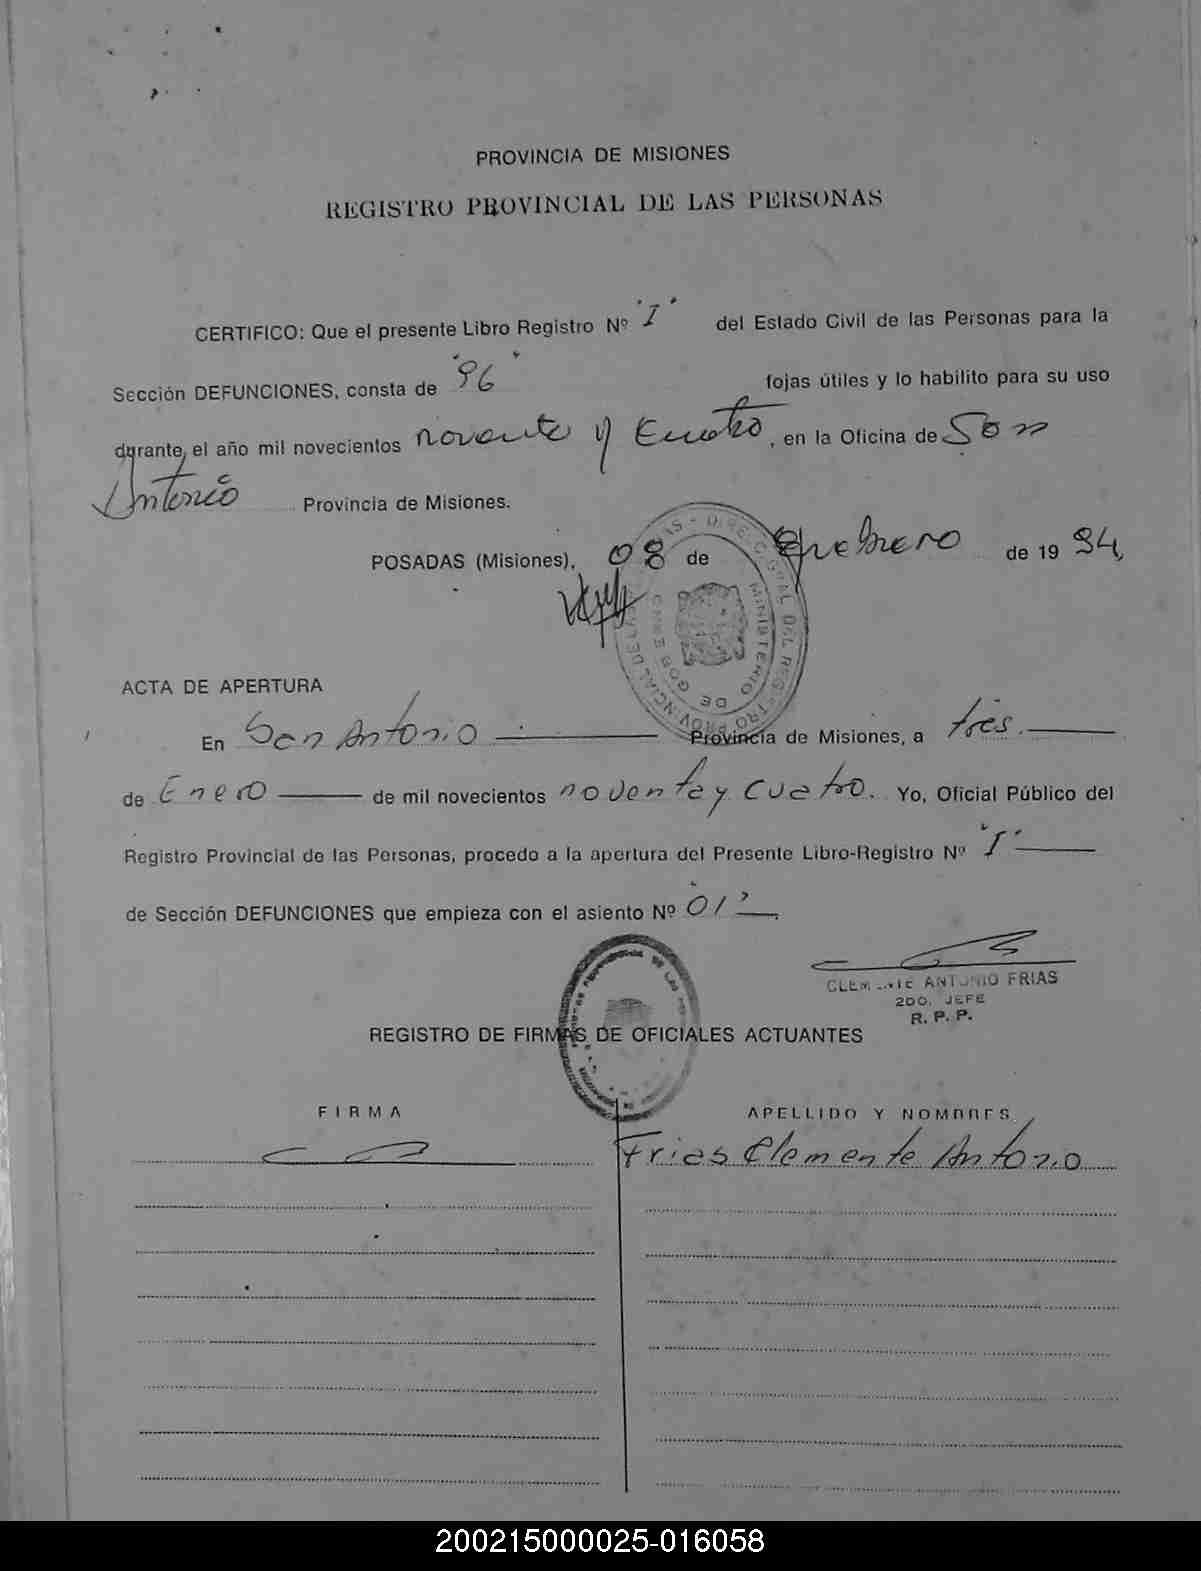 PROVINCIA DE MISIONES
REGISTRO PROVINCIAL DE LAS PERSONAS
CERTIFICO: Que el presente Libro Registro Nº "I" del Estado Civil de las Personas para la
Sección DEFUNCIONES, consta de "96" fojas útiles y lo habilito para su uso
durante el año mil novecientos novente y Cuatro, en la Oficina de San
Antonio Provincia de Misiones.
POSADAS (Misiones), 08 de de 19 94,
ACTA DE APERTURA
En San Antonio Provincia de Misiones, a tres.
de Enero de mil novecientos noventa y cuatro. Yo, Oficial Público del
Registro Provincial de las Personas, procedo a la apertura del Presente Libro-Registro Nº "I"
de Sección DEFUNCIONES que empieza con el asiento Nº "01"
CLEMENTE ANTONIO FRIAS
2DO. JEFE
R. P. P.
REGISTRO DE FIRMAS DE OFICIALES ACTUANTES
FIRMA APELLIDO Y NOMBRES
Frias Clemente Antonio
200215000025-016058